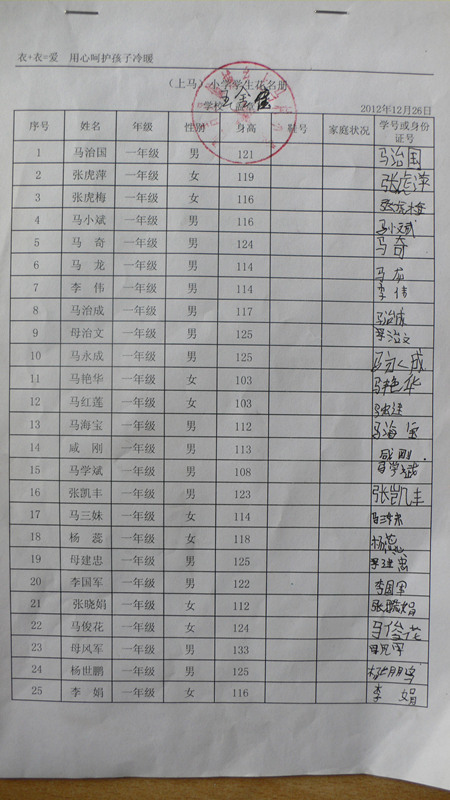 衣+衣=爱 用心呵护孩子冷暖
（上马）小学学生花名册
学校
2012年12月26日
序号 姓名 年级 性别 身高 鞋号 家庭状况 学号或身份证号
1 马治国 一年级 男 121 马治国
2 张虎萍 一年级 女 119 张虎萍
3 张虎梅 一年级 女 116 张虎梅
4 马小斌 一年级 男 116 马小斌
5 马 奇 一年级 男 124 马奇
6 马 龙 一年级 男 114 马龙
7 李 伟 一年级 男 114 李伟
8 马治成 一年级 男 117 马治成
9 母治文 一年级 男 125 母治文
10 马永成 一年级 男 125 马永成
11 马艳华 一年级 女 103 马艳华
12 马红莲 一年级 女 103 马红莲
13 马海宝 一年级 男 112 马海宝
14 咸 刚 一年级 男 113 咸刚
15 马学斌 一年级 男 108 马学斌
16 张凯丰 一年级 男 123 张凯丰
17 马三妹 一年级 女 114 马三妹
18 杨 蕊 一年级 女 118 杨蕊
19 母建忠 一年级 男 125 母建忠
20 李国军 一年级 男 122 李国军
21 张晓娟 一年级 女 112 张晓娟
22 马俊花 一年级 女 124 马俊花
23 母风军 一年级 男 133 母风军
24 杨世鹏 一年级 男 125 杨世鹏
25 李 娟 一年级 女 116 李娟